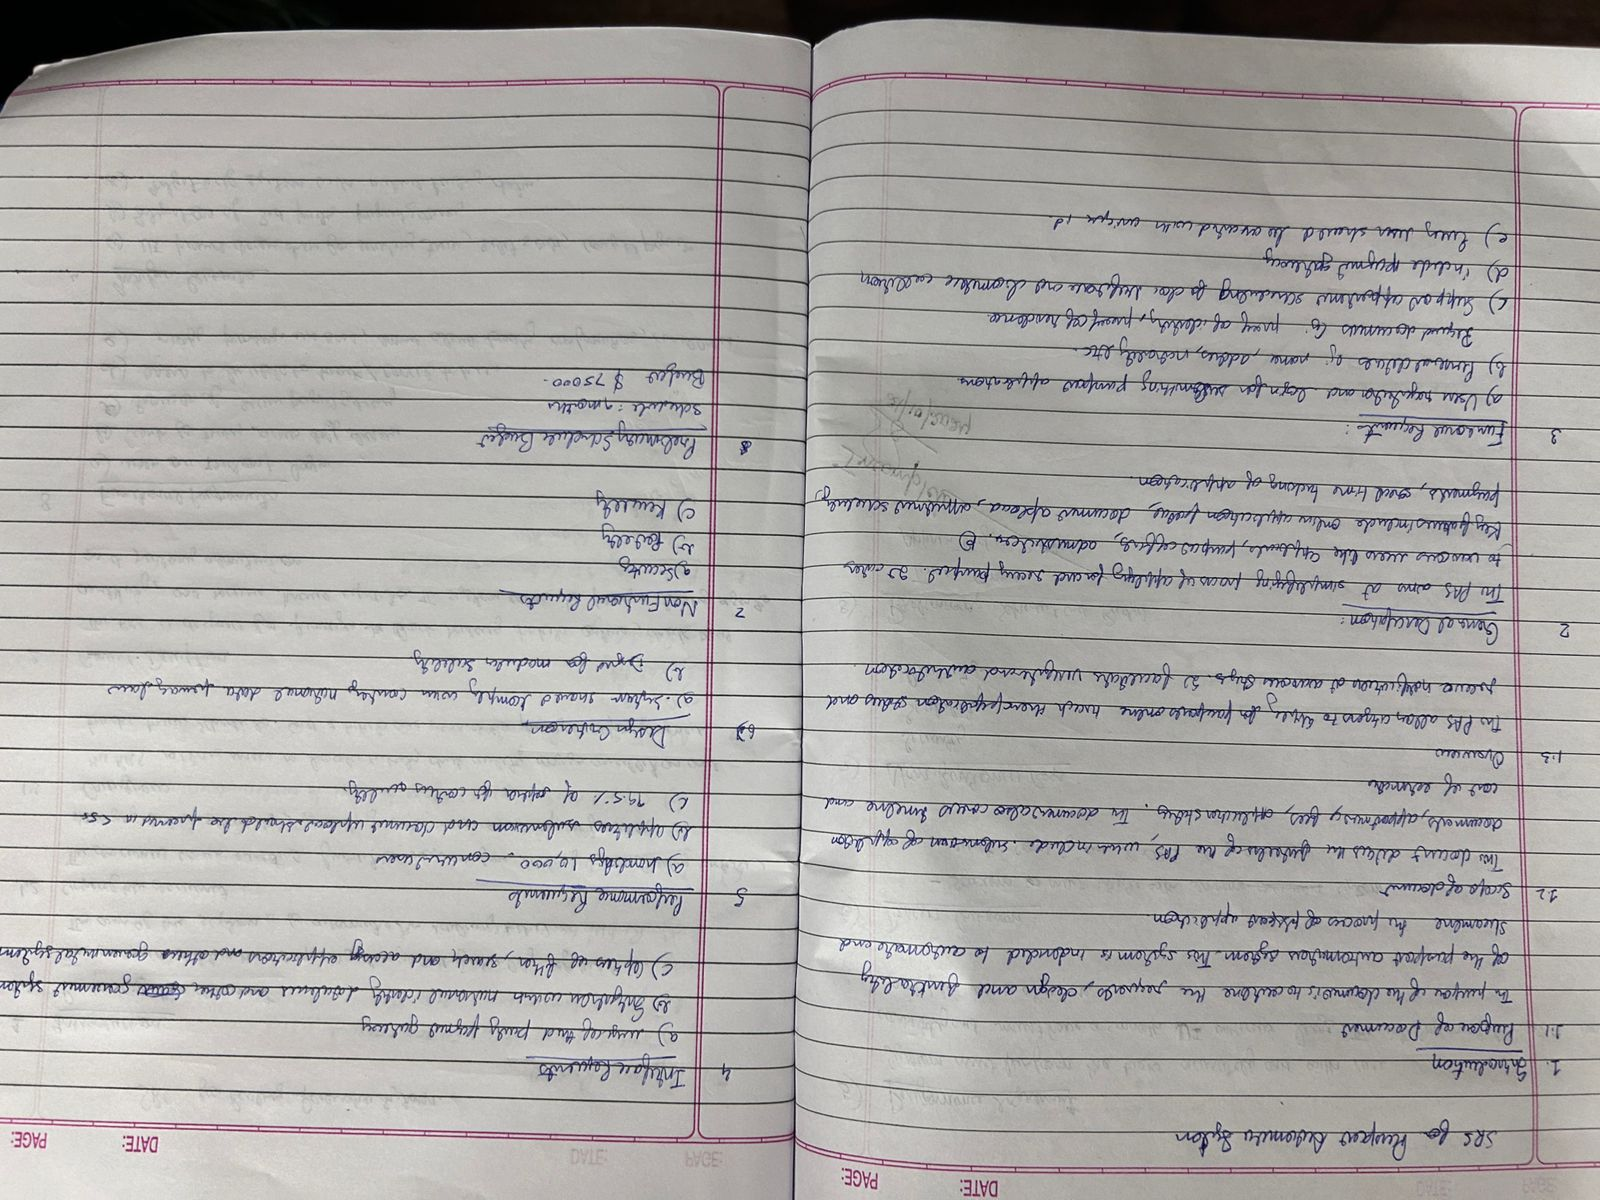 DATE: PAGE:
SRS for Passport Automation System
1. Introduction
1.1 Purpose of Document
The purpose of the document is to outline the requirements, design and functionality
of the passport automation system. This system is intended to automate and
streamline the process of passport application.
1.2 Scope of document
This document details the of the PAS, which include submission of application
documents, appointments, fees, application status. The documentation could timeline and
cost of estimation
1.3 Overview
The PAS allow citizens to apply for passports online track their application status and
receive notifications at various stages. It facilitates and authentication.
2 General Description:
The PAS aims at simplifying process of applying for and passport. It caters
to various users like applicants, passport officers, administrators.
Key features include online application portal, document upload, appointment scheduling,
payments, real time tracking of application.
3 Functional Requirements:
a) User registration and login for submitting passport applications
b) Personal details eg: name, address, nationality etc.
Required documents eg: proof of identity, proof of residence
c) Support appointment scheduling for doc and biometric collection
d) include payment gateway
e) Every user should be with unique id.
DATE: PAGE:
4 Interface Requirements
a) usage of third party payment gateway
b) Integration with national identity databases and other government system
c) Options of filter, search, and access applications and other governmental system
5 Performance Requirements
a) handles 10,000 concurrent users
b) application submission and document upload should be processed in <5s
c) 99.5% of for quality
6 Design
a) System should comply with country, national data privacy laws
b) for modular
7 Non Functional Requirements
a) Security
b)
c)
8 Preliminary Schedule Budget
Schedule: 7 months
Budget $ 75000.